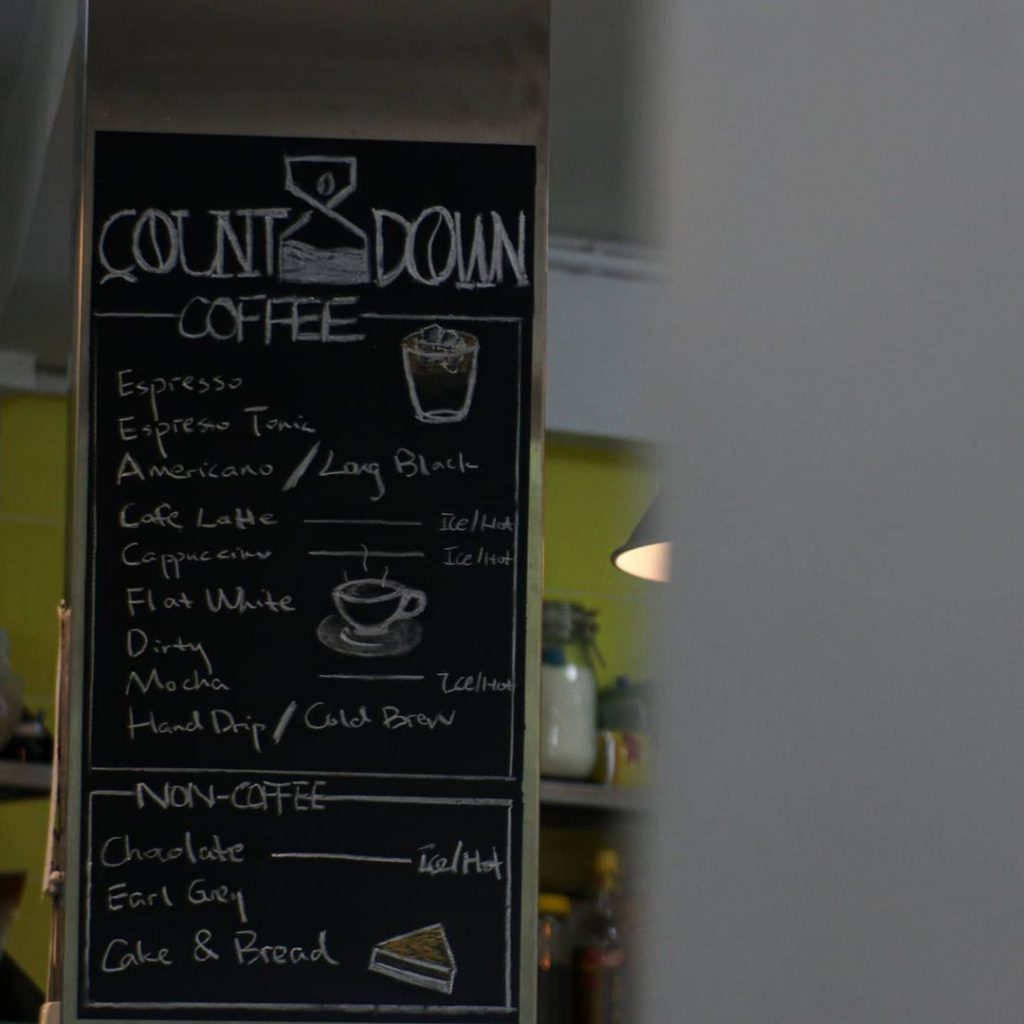 COUNT DOWN
COFFEE
Espresso
Espresso Tonic
Americano / Long Black
Cafe Latte Ice/Hot
Cappuccino Ice/Hot
Flat White
Dirty
Mocha Ice/Hot
Hand Drip / Cold Brew
NON-COFFEE
Chaolate Ice/Hot
Earl Grey
Cake & Bread